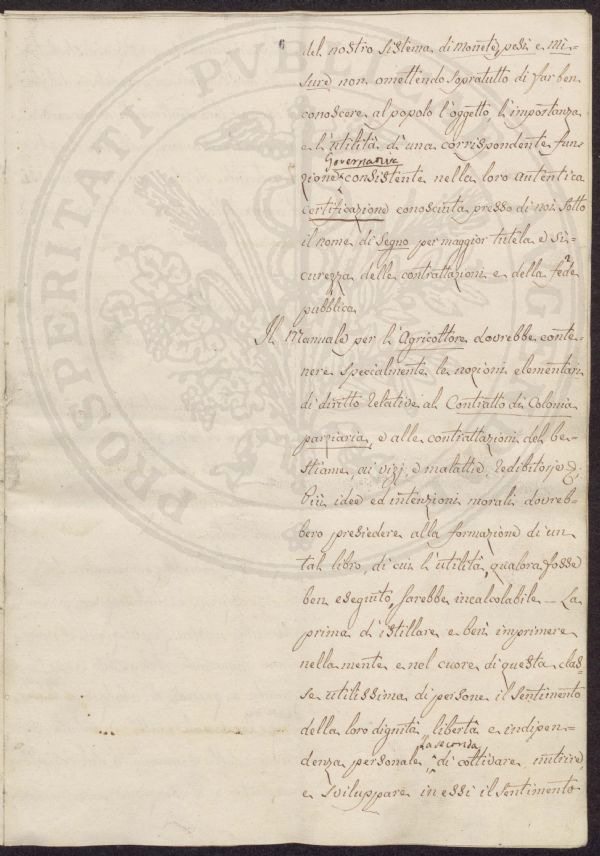 del nostro sistema di monete, pesi e mi-
sure non omettendo sopratutto di far ben
conoscere al popolo l'oggetto, l'importanza
e l'utilità di una corrispondente fun-
Governativa
zione consistente nella loro autentica
certificazione conosciuta presso di noi sotto
il nome di Segno per maggior tutela e si-
curezza delle contrattazioni e della fede
pubblica
Il Manuale per l'Agricoltore dovrebbe conte-
nere specialmente le nozioni elementari
di diritto relative al Contratto di Colonia
parziaria, e alle contrattazioni del be-
stiame, ai vizj e malattie redibitorie &.
Più idee ed intenzioni morali dovreb-
bero presiedere alla formazione di un
tal libro, di cui l'utilità, qualora fosse
ben eseguito, sarebbe incalcolabile — La
prima d'istillare e ben imprimere
nella mente e nel cuore di questa clas-
se utilissima di persone il sentimento
della loro dignità, libertà e indipen-
la seconda
denza personale, di coltivare, nutrire
e sviluppare in essi il sentimento
PROSPERITATI PUBLICAE